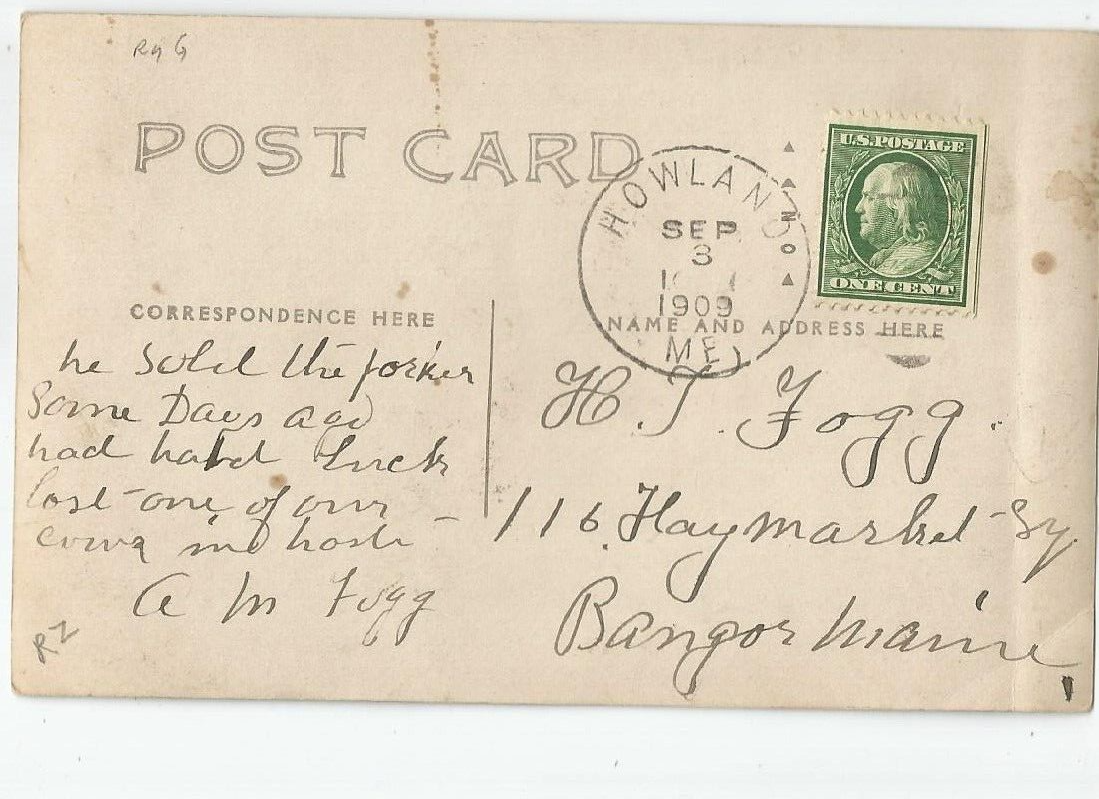 POST CARD
HOWLAND
SEP
3
1909
ME.
U.S.POSTAGE
ONE CENT
CORRESPONDENCE HERE
he Sold the porker
Some Days ago
had hard Luck
lost one of our
in haste
A M Fogg
NAME AND ADDRESS HERE
H. T. Fogg.
116 Haymarket Sq.
Bangor Maine